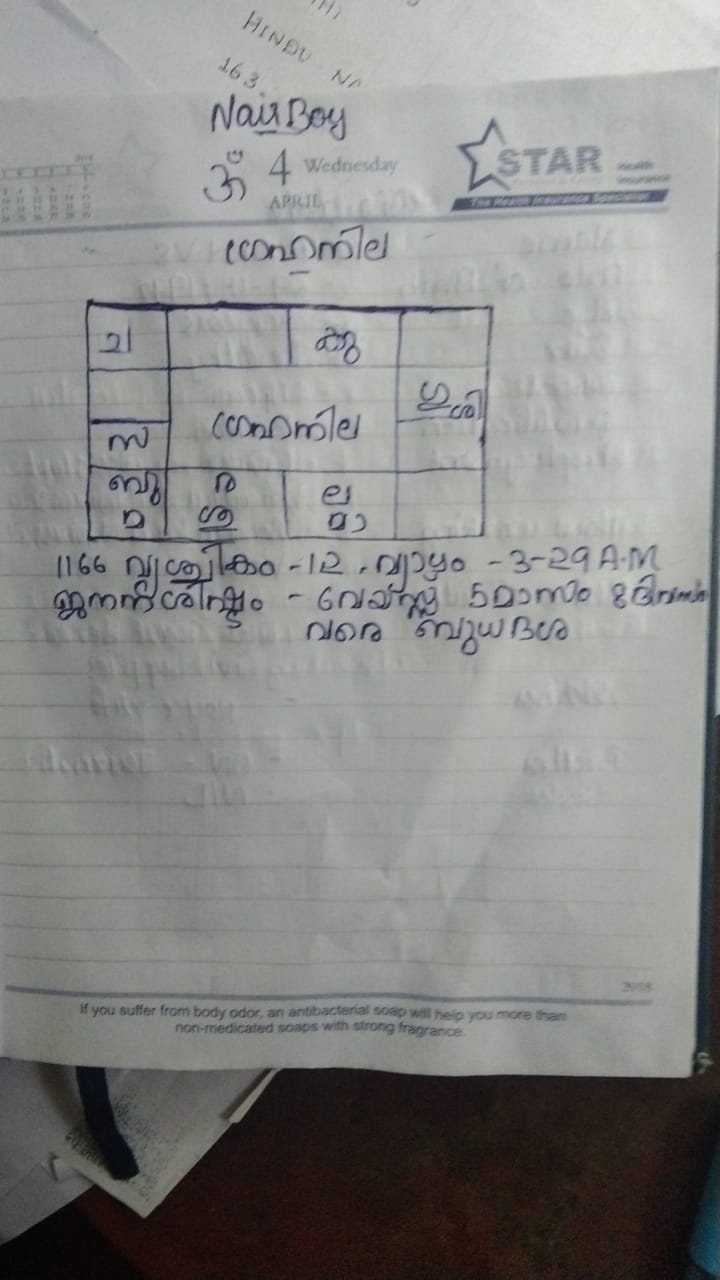 HINDU NA
163
Nair Boy
ॐ 4 Wednesday
APRIL
STAR Health Insurance
The Health Insurance Specialist
ഗ്രഹനില
ച കു
ഗു ശി
ഗ്രഹനില
സ
ബു ര ല
മ ശു മാ
1166 വൃശ്ചികം - 12, വ്യാഴം - 3-29 A.M
ജനനശിഷ്ടം - വയസ്സ് 5 മാസം 8 ദിവസം
വരെ ബുധദശ
2018
If you suffer from body odor, an antibacterial soap will help you more than
non-medicated soaps with strong fragrance.